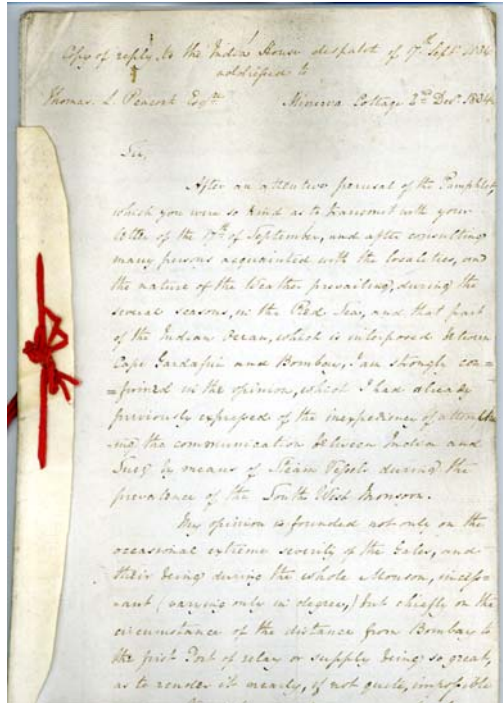 Copy of reply, to the India House despatch of 17th Septr 1834
addressed to
Thomas. L. Peacock Esqre Minerva Cottage 2nd Decr. 1834
Sir,
After an attentive perusal of the Pamphlet,
which you were so kind as to transmit with your
letter of the 17th of September, and after consulting
many persons acquainted with the localities, and
the nature of the Weather prevailing, during the
several seasons, in the Red Sea, and that part
of the Indian Ocean, which is interposed between
Cape Gardafui and Bombay, I am strongly con=
=firmed in the opinion, which I had already
previously expressed of the inexpediency of attempt
ing the communication between India and
Suez by means of Steam Vessels during the
prevalence of the South West Monsoon.
My opinion is founded not only on the
occasional extreme severity of the Gales, and
their being during the whole Monsoon, incess=
nant (varying only in degree,) but chiefly on the
circumstance of the distance from Bombay to
the first Port of relay or supply being so great,
as to render it nearly, if not quite, impossible